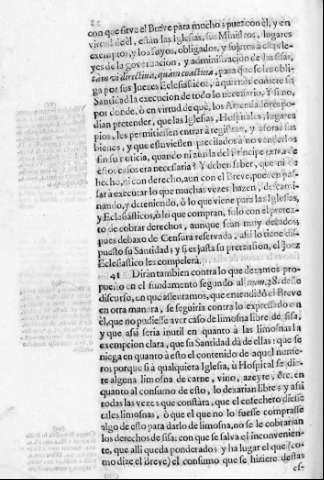 con que sirve el Breve para mucho: pues con èl, y en
virtud de èl, estàn las Iglesias, sus Ministros, lugares
exemptos, y los suyos, obligados, y sujetos à
yes de la governacion, y administracion de la sisa,
tam vi directiva, quàm coactiva, para que se les obli-
ga por sus Juezes Eclesiasticos, à quienes comete su
Santidad la execucion de todo lo necesario. Y si no,
por donde, ò en virtud de què, los Arrendadores po-
dian pretender, que las Iglesias, Hospitales, lugares
pios, les permitiessen entrar à registrar, y aforar sus
bienes, y que estuviessen precisados à no venderlos
sin su noticia, quando ni aun la del Principe
estos casos era necessaria? Y deben saber, que ni de
hecho, ni con derecho, aun con el Breve, pueden pas-
sar à executar lo que muchas vezes hazen, descami-
nando, y deteniendo, ò lo que viene para las Iglesias,
y Eclesiasticos, ò lo que compran, solo con el pretex-
to de cobrar derechos, aunque sean muy debidos;
pues debaxo de Censura reservada, assi lo tiene dis-
puesto su Santidad; y si es justa su pretension, el Juez
Eclesiastico les compelerà.
41 Diràn tambien contra lo que dexamos pro-
puesto en el fundamento segundo al num. 28. deste
discurso, en que assentamos, que entendido el Breve
en otra manera, se seguiria contra lo expressado en
èl, que no pudiesse aver caso de limosna libre de sisa,
y que assi seria inutil en quanto à las limosnas la
exempcion clara, que su Santidad dà de ellas: que se
niega en quanto à esto el contenido de aquel nume-
ro: porque si à qualquiera Iglesia, ù Hospital se die-
re alguna limosna de carne, vino, azeyte, &c. en
quanto al consumo de esto, lo dexarian libre: y assi
todas las vezes que constàra, que el cosechero diesse
tales limosnas, ò que el que no lo fuesse comprasse
algo de esto para darlo de limosna, no se le cobraràn
los derechos de sisa: con que se salva el inconvenien-
te, que alli queda ponderado: y ha lugar el que (co-
mo dize el Breve) el consumo que se hiziere destas
es-